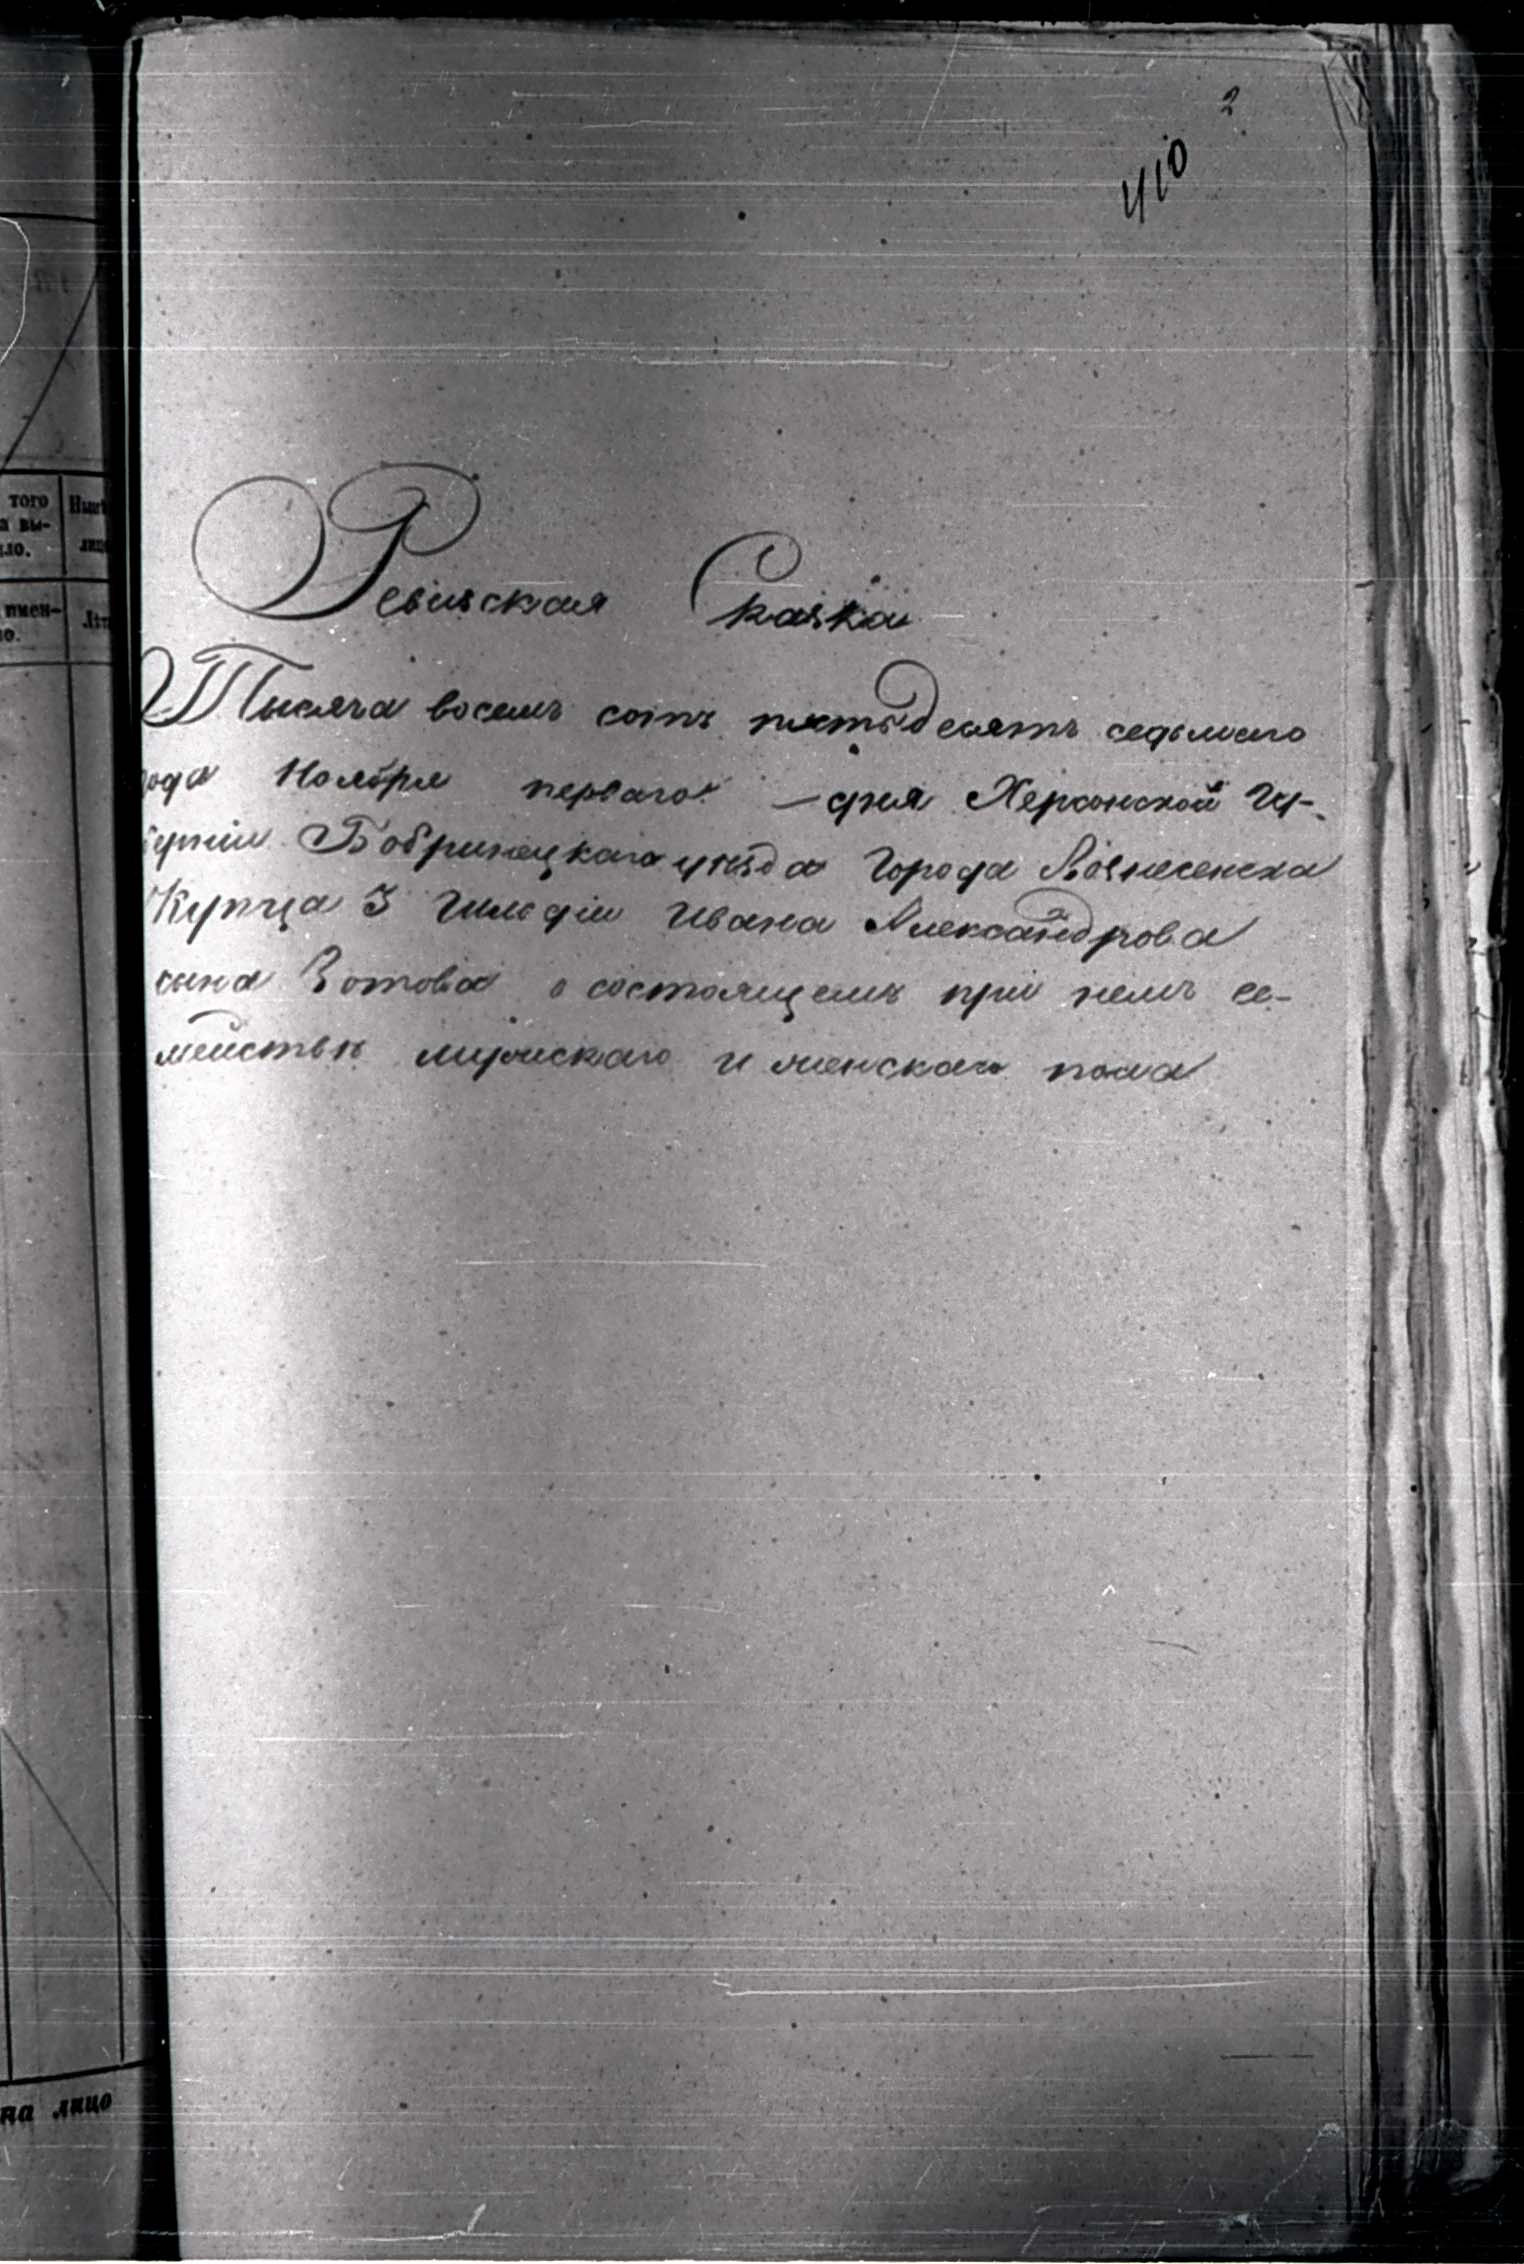 410
того
а вы-
ло.
имен-
но.
на лицо
Ревизская Сказка
Тысяча восемь сотъ пятьдесятъ седьмаго
года Ноября перваго дня Херсонской Гу-
берніи Бобринецкаго уезда Города Вознесенска
Купца 3 Гильдіи Ивана Александрова
сына Зотова о состоящемъ при немъ се-
мействѣ мужскаго и женскаго пола